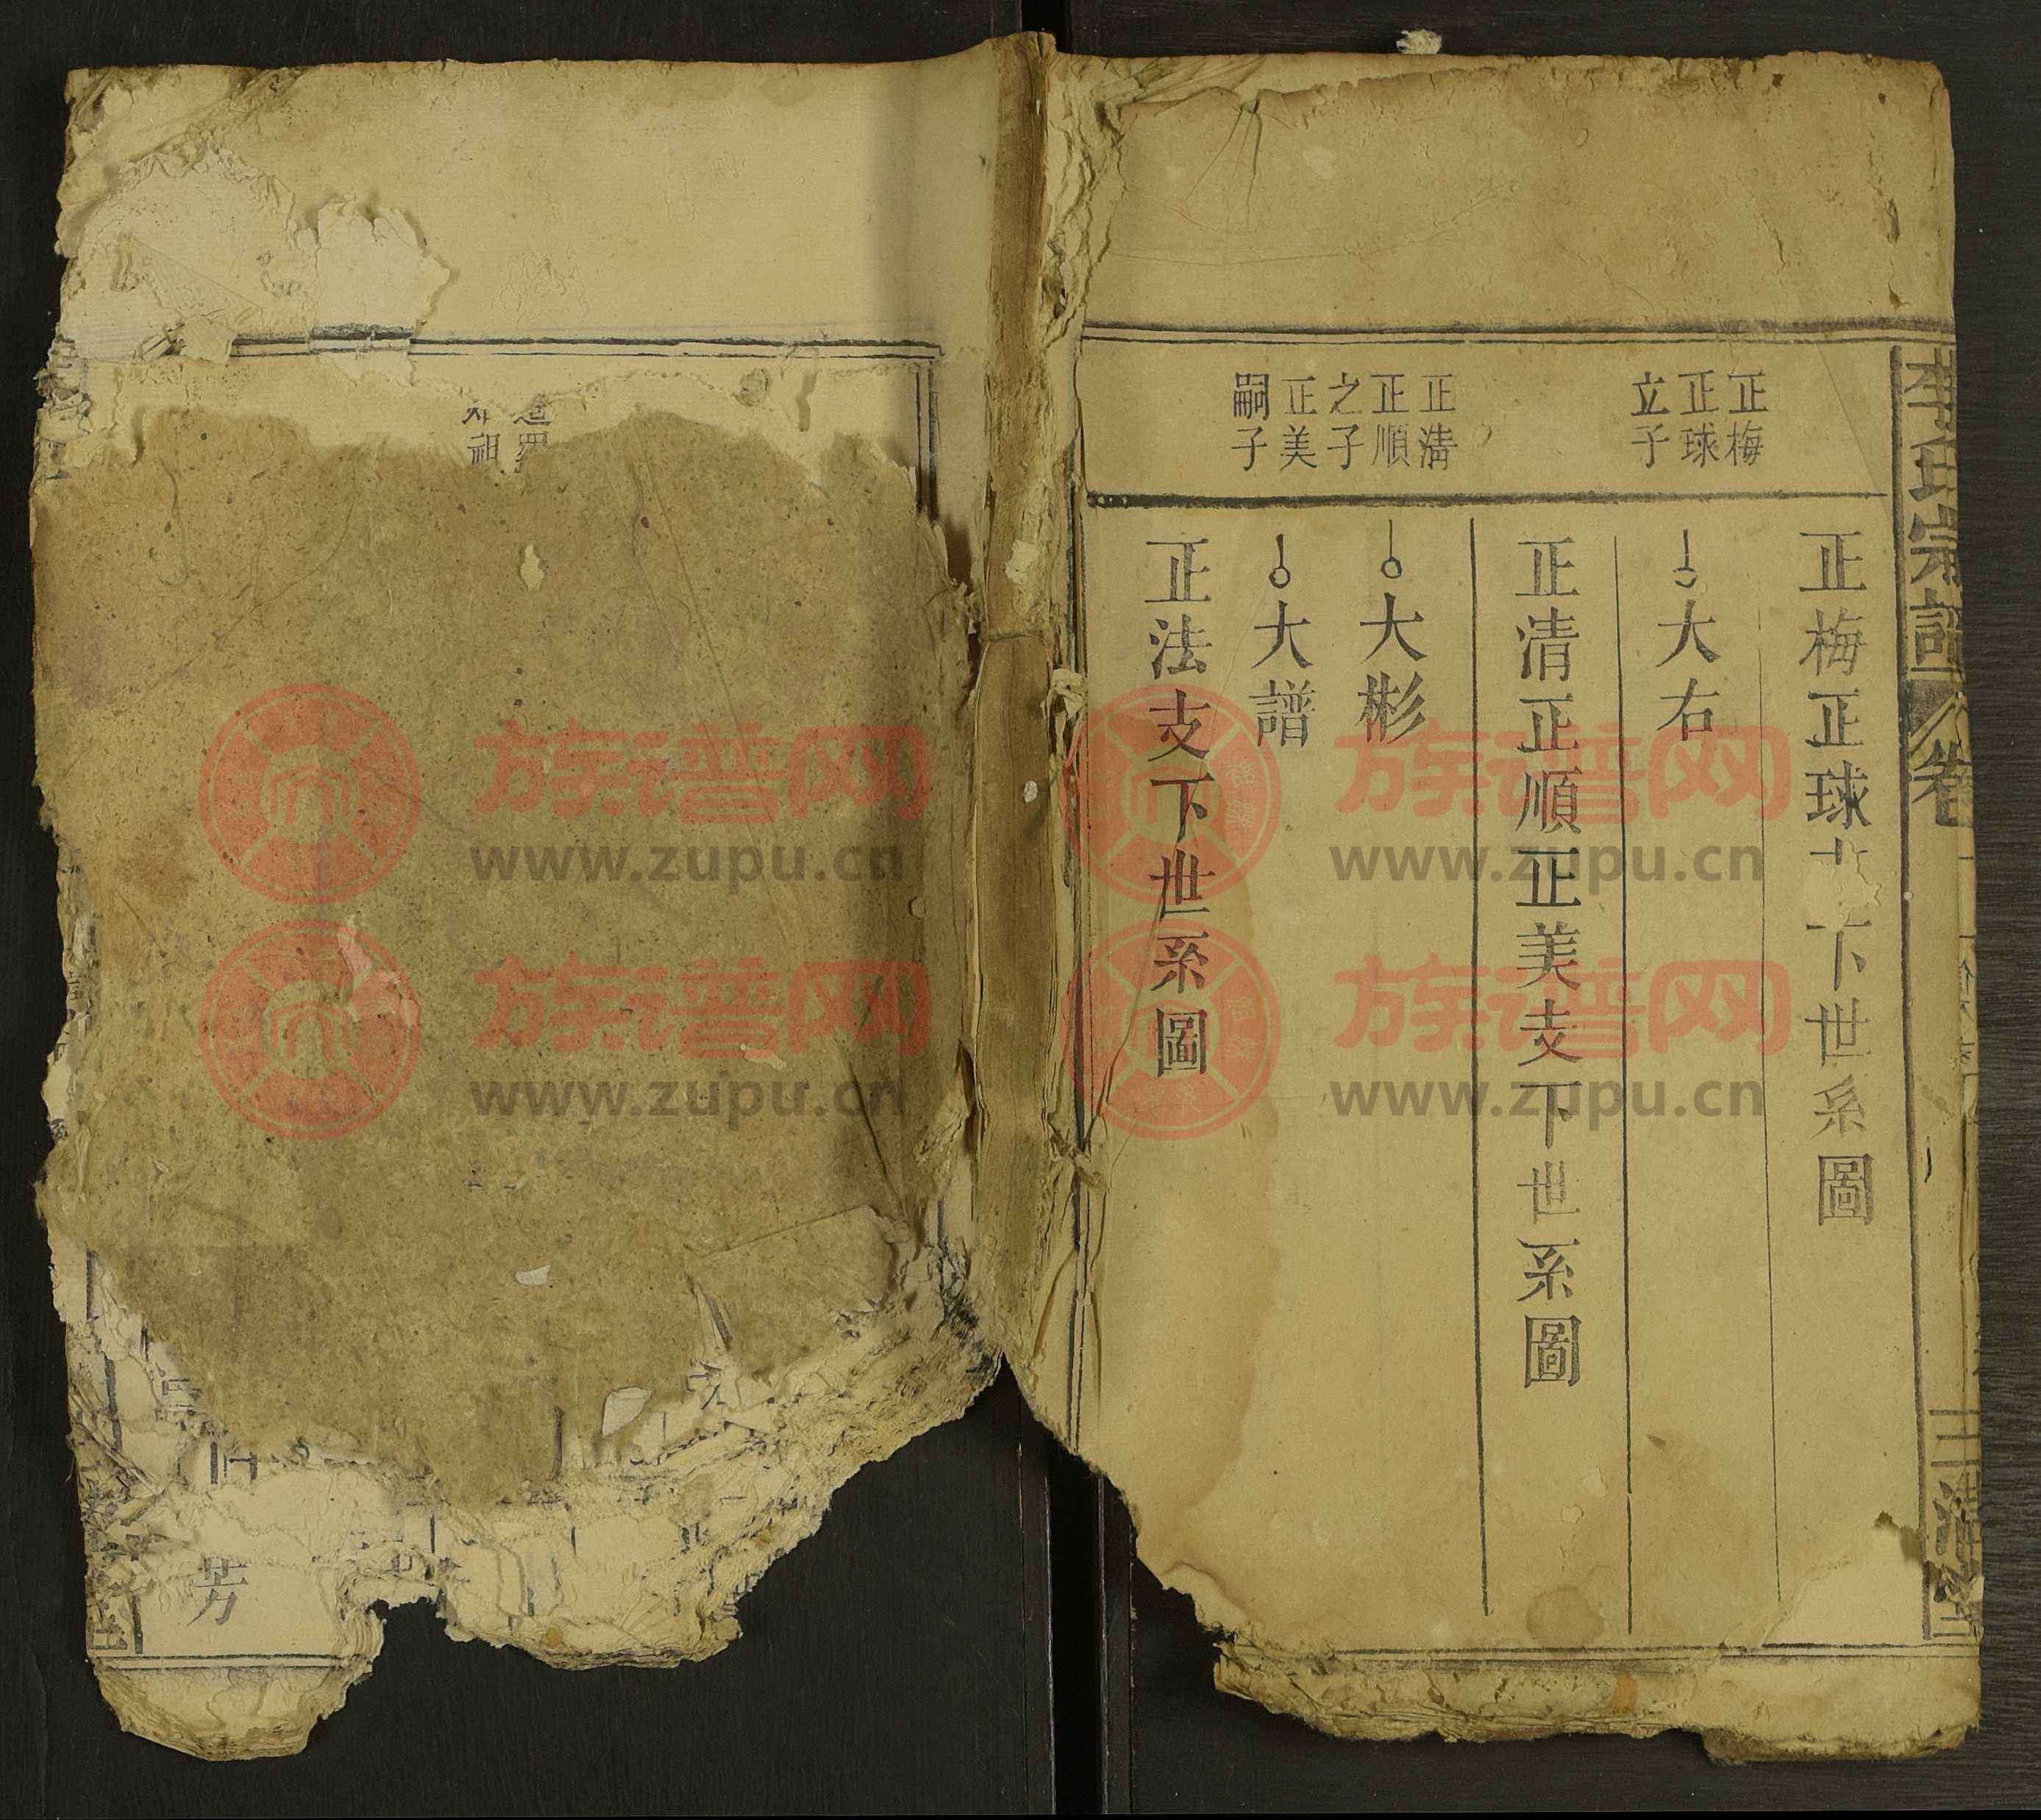 李氏宗譜
卷
三清堂
正梅
正球
立子
正清
正順
之子
正美
嗣子
正梅正球 下世系圖
大右
正清正順正美支下世系圖
大彬
大譜
正法支下世系圖
祖
芳
族谱网
www.zupu.cn
族谱网
www.zupu.cn
族谱网
www.zupu.cn
族谱网
www.zupu.cn